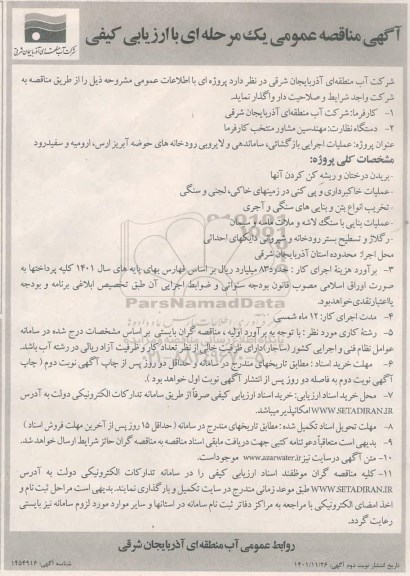 آگهی مناقصه عمومی یک مرحله ای با ارزیابی کیفی
شرکت آب منطقه‌ای آذربایجان شرقی
شرکت آب منطقه‌ای آذربایجان شرقی در نظر دارد پروژه ای با اطلاعات عمومی مشروحه ذیل را از طریق مناقصه به
شرکت واجد شرایط و صلاحیت دار واگذار نماید.
۱- کارفرما: شرکت آب منطقه‌ای آذربایجان شرقی
۲- دستگاه نظارت: مهندسین مشاور منتخب کارفرما
عنوان پروژه: عملیات اجرایی بازگشائی، ساماندهی و لایروبی رودخانه های حوضه آبریز ارس، ارومیه و سفیدرود
مشخصات کلی پروژه:
-بریدن درختان و ریشه کن کردن آنها
-عملیات خاکبرداری و پی کنی در زمینهای خاکی، لجنی و سنگی
-تخریب انواع بتن و بنایی های سنگی و آجری
-عملیات بنایی با سنگ لاشه و ملات ماسه و سیمان
-رگلاژ و تسطیح بستر رودخانه و شیروانی دایکهای احداثی
محل اجرا: محدوده استان آذربایجان شرقی
۳- برآورد هزینۀ اجرای کار : حدود ۸۳ میلیارد ریال بر اساس فهارس بهای پایه های سال ۱۴۰۱ کلیه پرداختها به
صورت اوراق اسلامی مصوب قانون بودجه سنواتی و ضوابط اجرایی آن طبق تخصیص ابلاغی برنامه و بودجه
یا اعتبار نقدی خواهد بود.
۴- مدت اجرای کار: ۱۲ ماه شمسی
۵- رشته کاری مورد نظر : با توجه به برآورد اولیه ، مناقصه گران بایستی بر اساس مشخصات درج شده در سامانه
عوامل نظام فنی و اجرایی کشور (ساجار) دارای ظرفیت خالی از نظر تعداد کار و ظرفیت آزاد ریالی در رشته آب باشد.
۶- مهلت خرید اسناد : مطابق تاریخهای مندرج در سامانه و حداقل دو روز پس از چاپ آگهی نوبت دوم ( چاپ
آگهی نوبت دوم به فاصله دو روز پس از انتشار آگهی نوبت اول خواهد بود ).
۷- محل خرید اسناد ارزیابی: خرید اسناد ارزیابی کیفی صرفاً از طریق سامانه تدارکات الکترونیکی دولت به آدرس
WWW.SETADIRAN.IR امکانپذیر میباشد.
۸- مهلت تحویل اسناد تکمیل شده : مطابق تاریخهای مندرج در سامانه ( حداقل ۱۵ روز پس از آخرین مهلت فروش اسناد )
۹- بدیهی است متعاقباً دعوتنامه کتبی جهت دریافت مابقی اسناد مناقصه به مناقصه گران حائز شرایط ارسال خواهد شد.
۱۰- متن آگهی در سایت نیز www.azarwater.ir موجود است.
۱۱- کلیه مناقصه گران موظفند اسناد ارزیابی کیفی را در سامانه تدارکات الکترونیکی دولت به آدرس
WWW.SETADIRAN.IR طبق موعد زمانی مندرج در سایت تکمیل و بارگذاری نمایند. بدیهی است مراحل ثبت نام و
اخذ امضای الکترونیکی با مراجعه به مراکز دفاتر ثبت نام سامانه در استانها و سایر موارد مورد لزوم سامانه نیز بایستی
رعایت گردد.
روابط عمومی آب منطقه ای آذربایجان شرقی
تاریخ انتشار نوبت دوم آگهی: ۱۴۰۱/۱۱/۲۶
شناسه آگهی: ۱۴۵۴۹۱۶
ParsNamadData